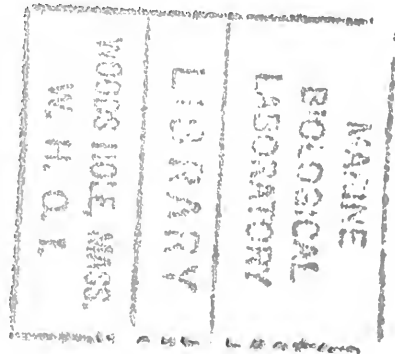 MARINE
BIOLOGICAL
LABORATORY
LIBRARY
WOODS HOLE, MASS.
W. H. O. I.